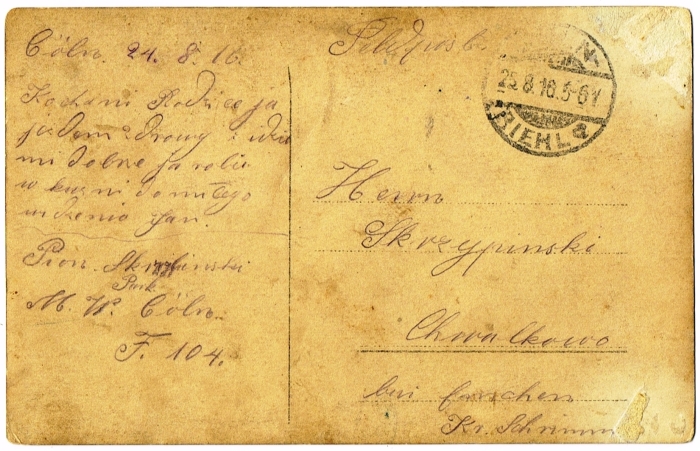 Cöln. 24. 8. 16.
Kochani Rodzice ja
jestem zdrowy i
mi dobrze ja robie
w do miłego
widzenia Jan.
Pion. Skrzypinski
Park
M. W. Cöln.
F. 104.
Feldpost
25.8.16.5-6N
BIEHL
Herrn
Skrzypinski
Chwalkowo
bei
Kr. Schrimm